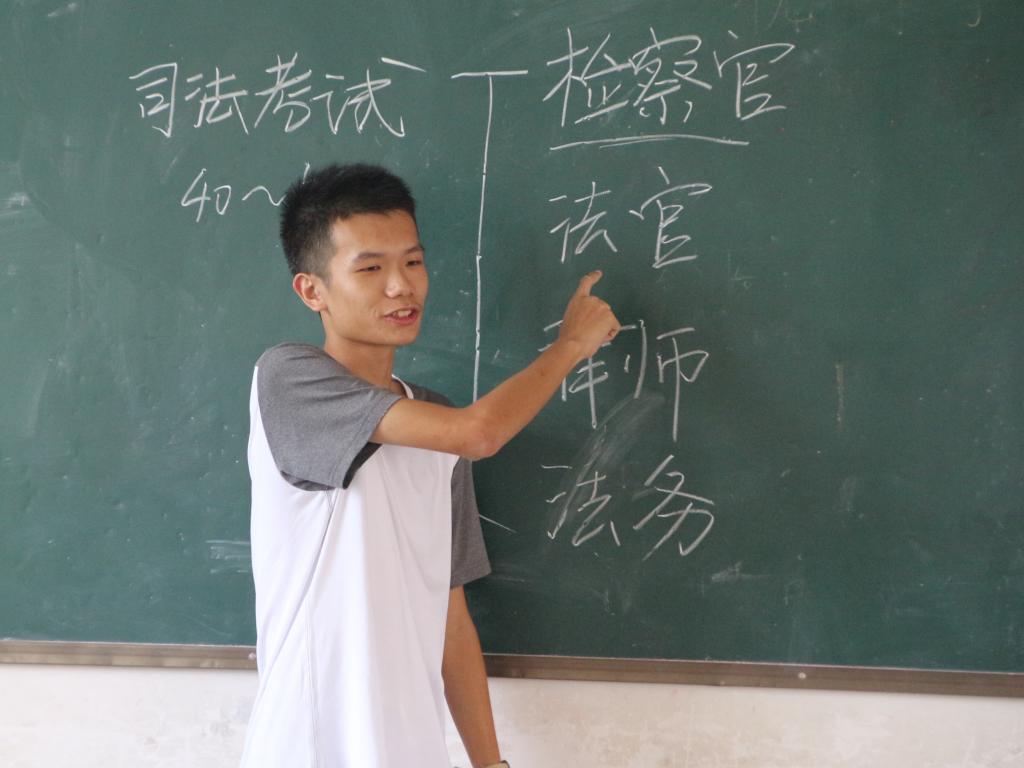 司法考试
40~
检察官
法官
律师
法务